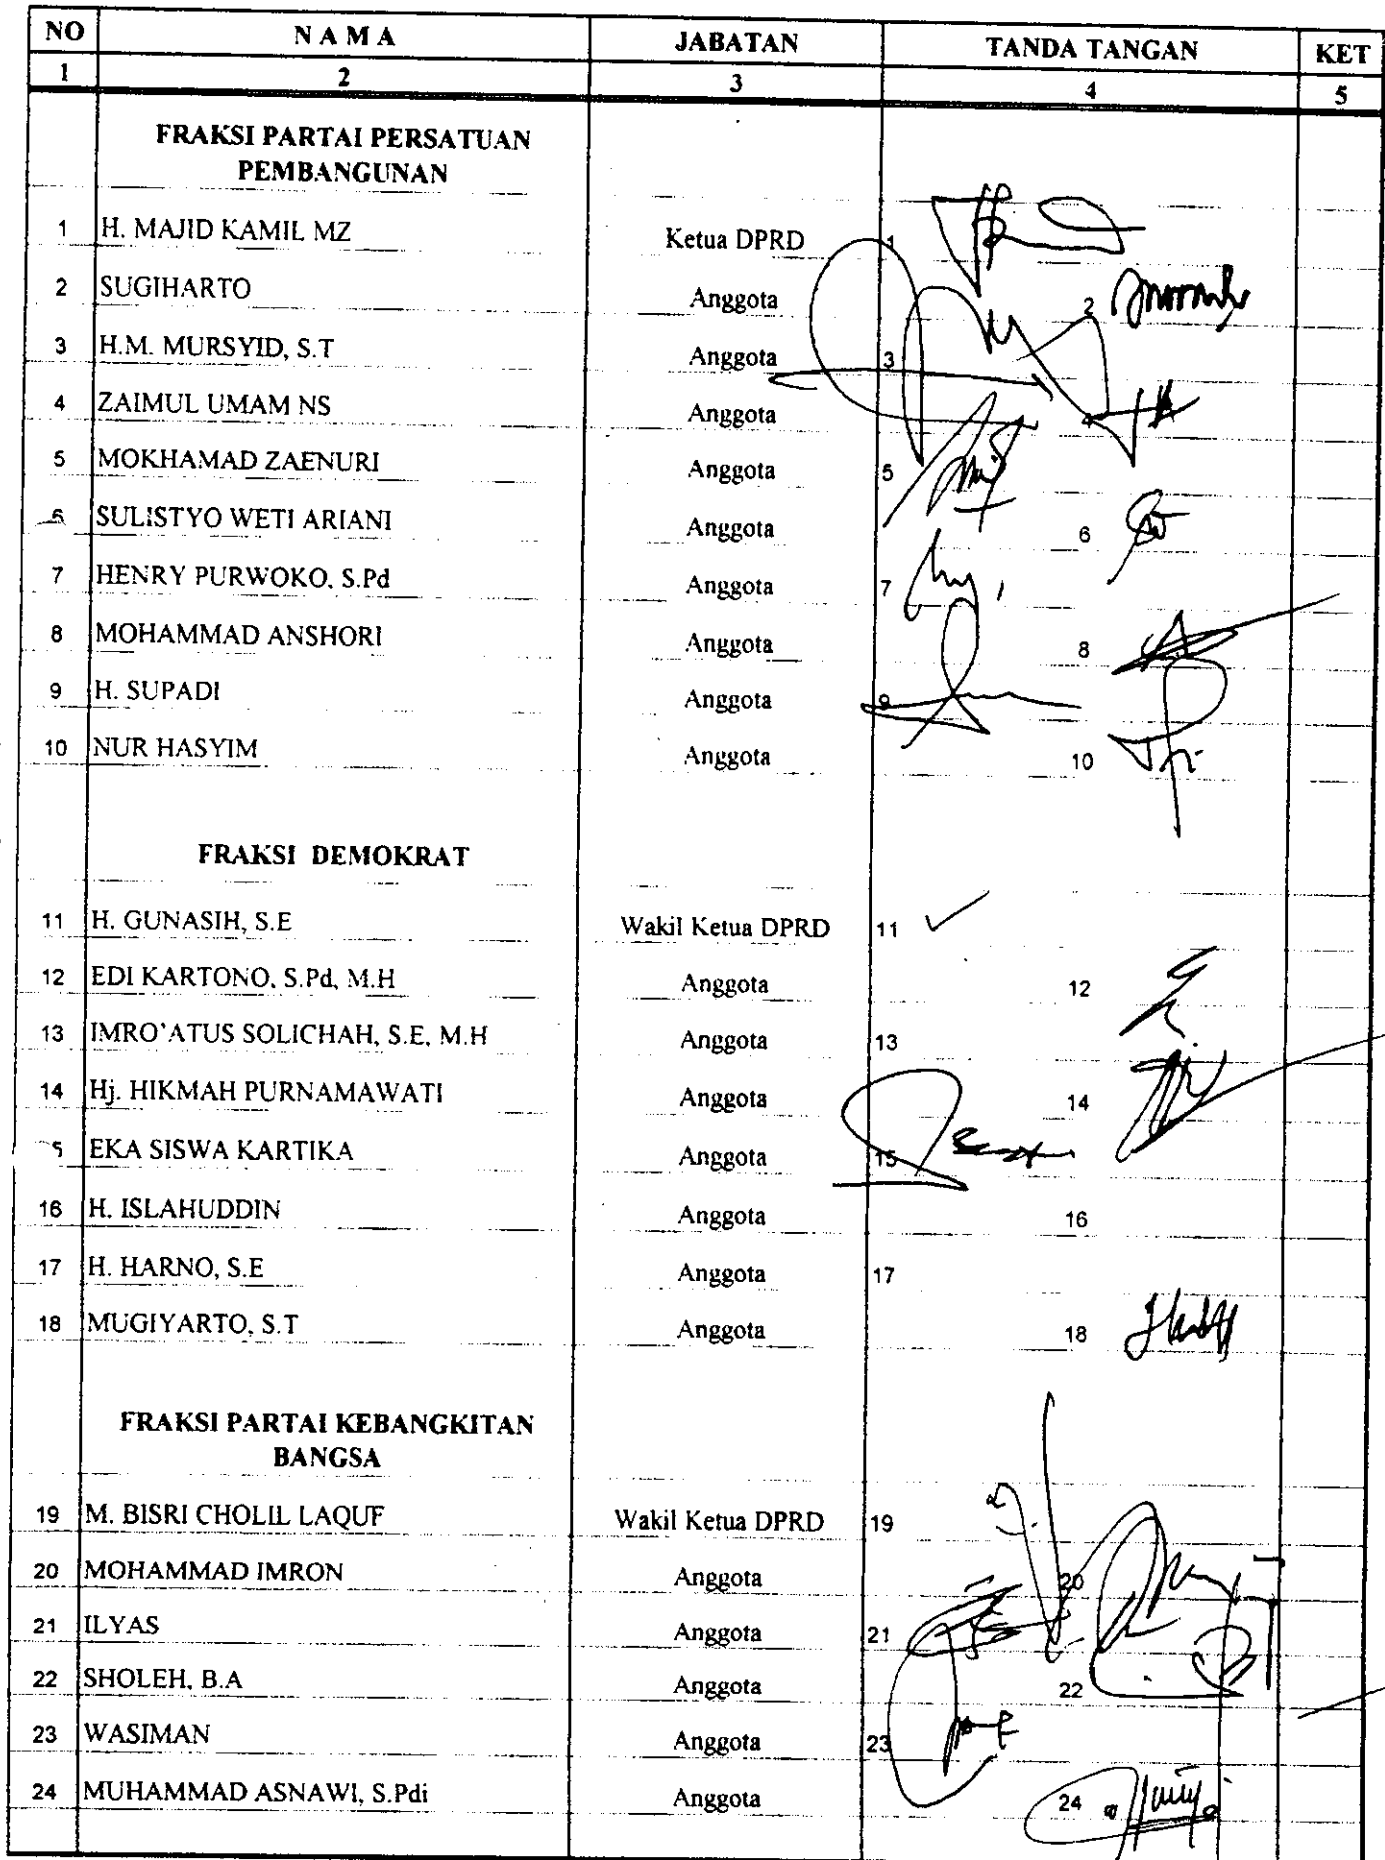 NO NAMA JABATAN TANDA TANGAN KET
1 2 3 4 5
FRAKSI PARTAI PERSATUAN
PEMBANGUNAN
1 H. MAJID KAMIL MZ Ketua DPRD 1
2 SUGIHARTO Anggota 2
3 H.M. MURSYID, S.T Anggota 3
4 ZAIMUL UMAM NS Anggota 4
5 MOKHAMAD ZAENURI Anggota 5
6 SULISTYO WETI ARIANI Anggota 6
7 HENRY PURWOKO, S.Pd Anggota 7
8 MOHAMMAD ANSHORI Anggota 8
9 H. SUPADI Anggota 9
10 NUR HASYIM Anggota 10
FRAKSI DEMOKRAT
11 H. GUNASIH, S.E Wakil Ketua DPRD 11
12 EDI KARTONO, S.Pd, M.H Anggota 12
13 IMRO'ATUS SOLICHAH, S.E, M.H Anggota 13
14 Hj. HIKMAH PURNAMAWATI Anggota 14
5 EKA SISWA KARTIKA Anggota 15
16 H. ISLAHUDDIN Anggota 16
17 H. HARNO, S.E Anggota 17
18 MUGIYARTO, S.T Anggota 18
FRAKSI PARTAI KEBANGKITAN
BANGSA
19 M. BISRI CHOLIL LAQUF Wakil Ketua DPRD 19
20 MOHAMMAD IMRON Anggota 20
21 ILYAS Anggota 21
22 SHOLEH, B.A Anggota 22
23 WASIMAN Anggota 23
24 MUHAMMAD ASNAWI, S.Pdi Anggota 24